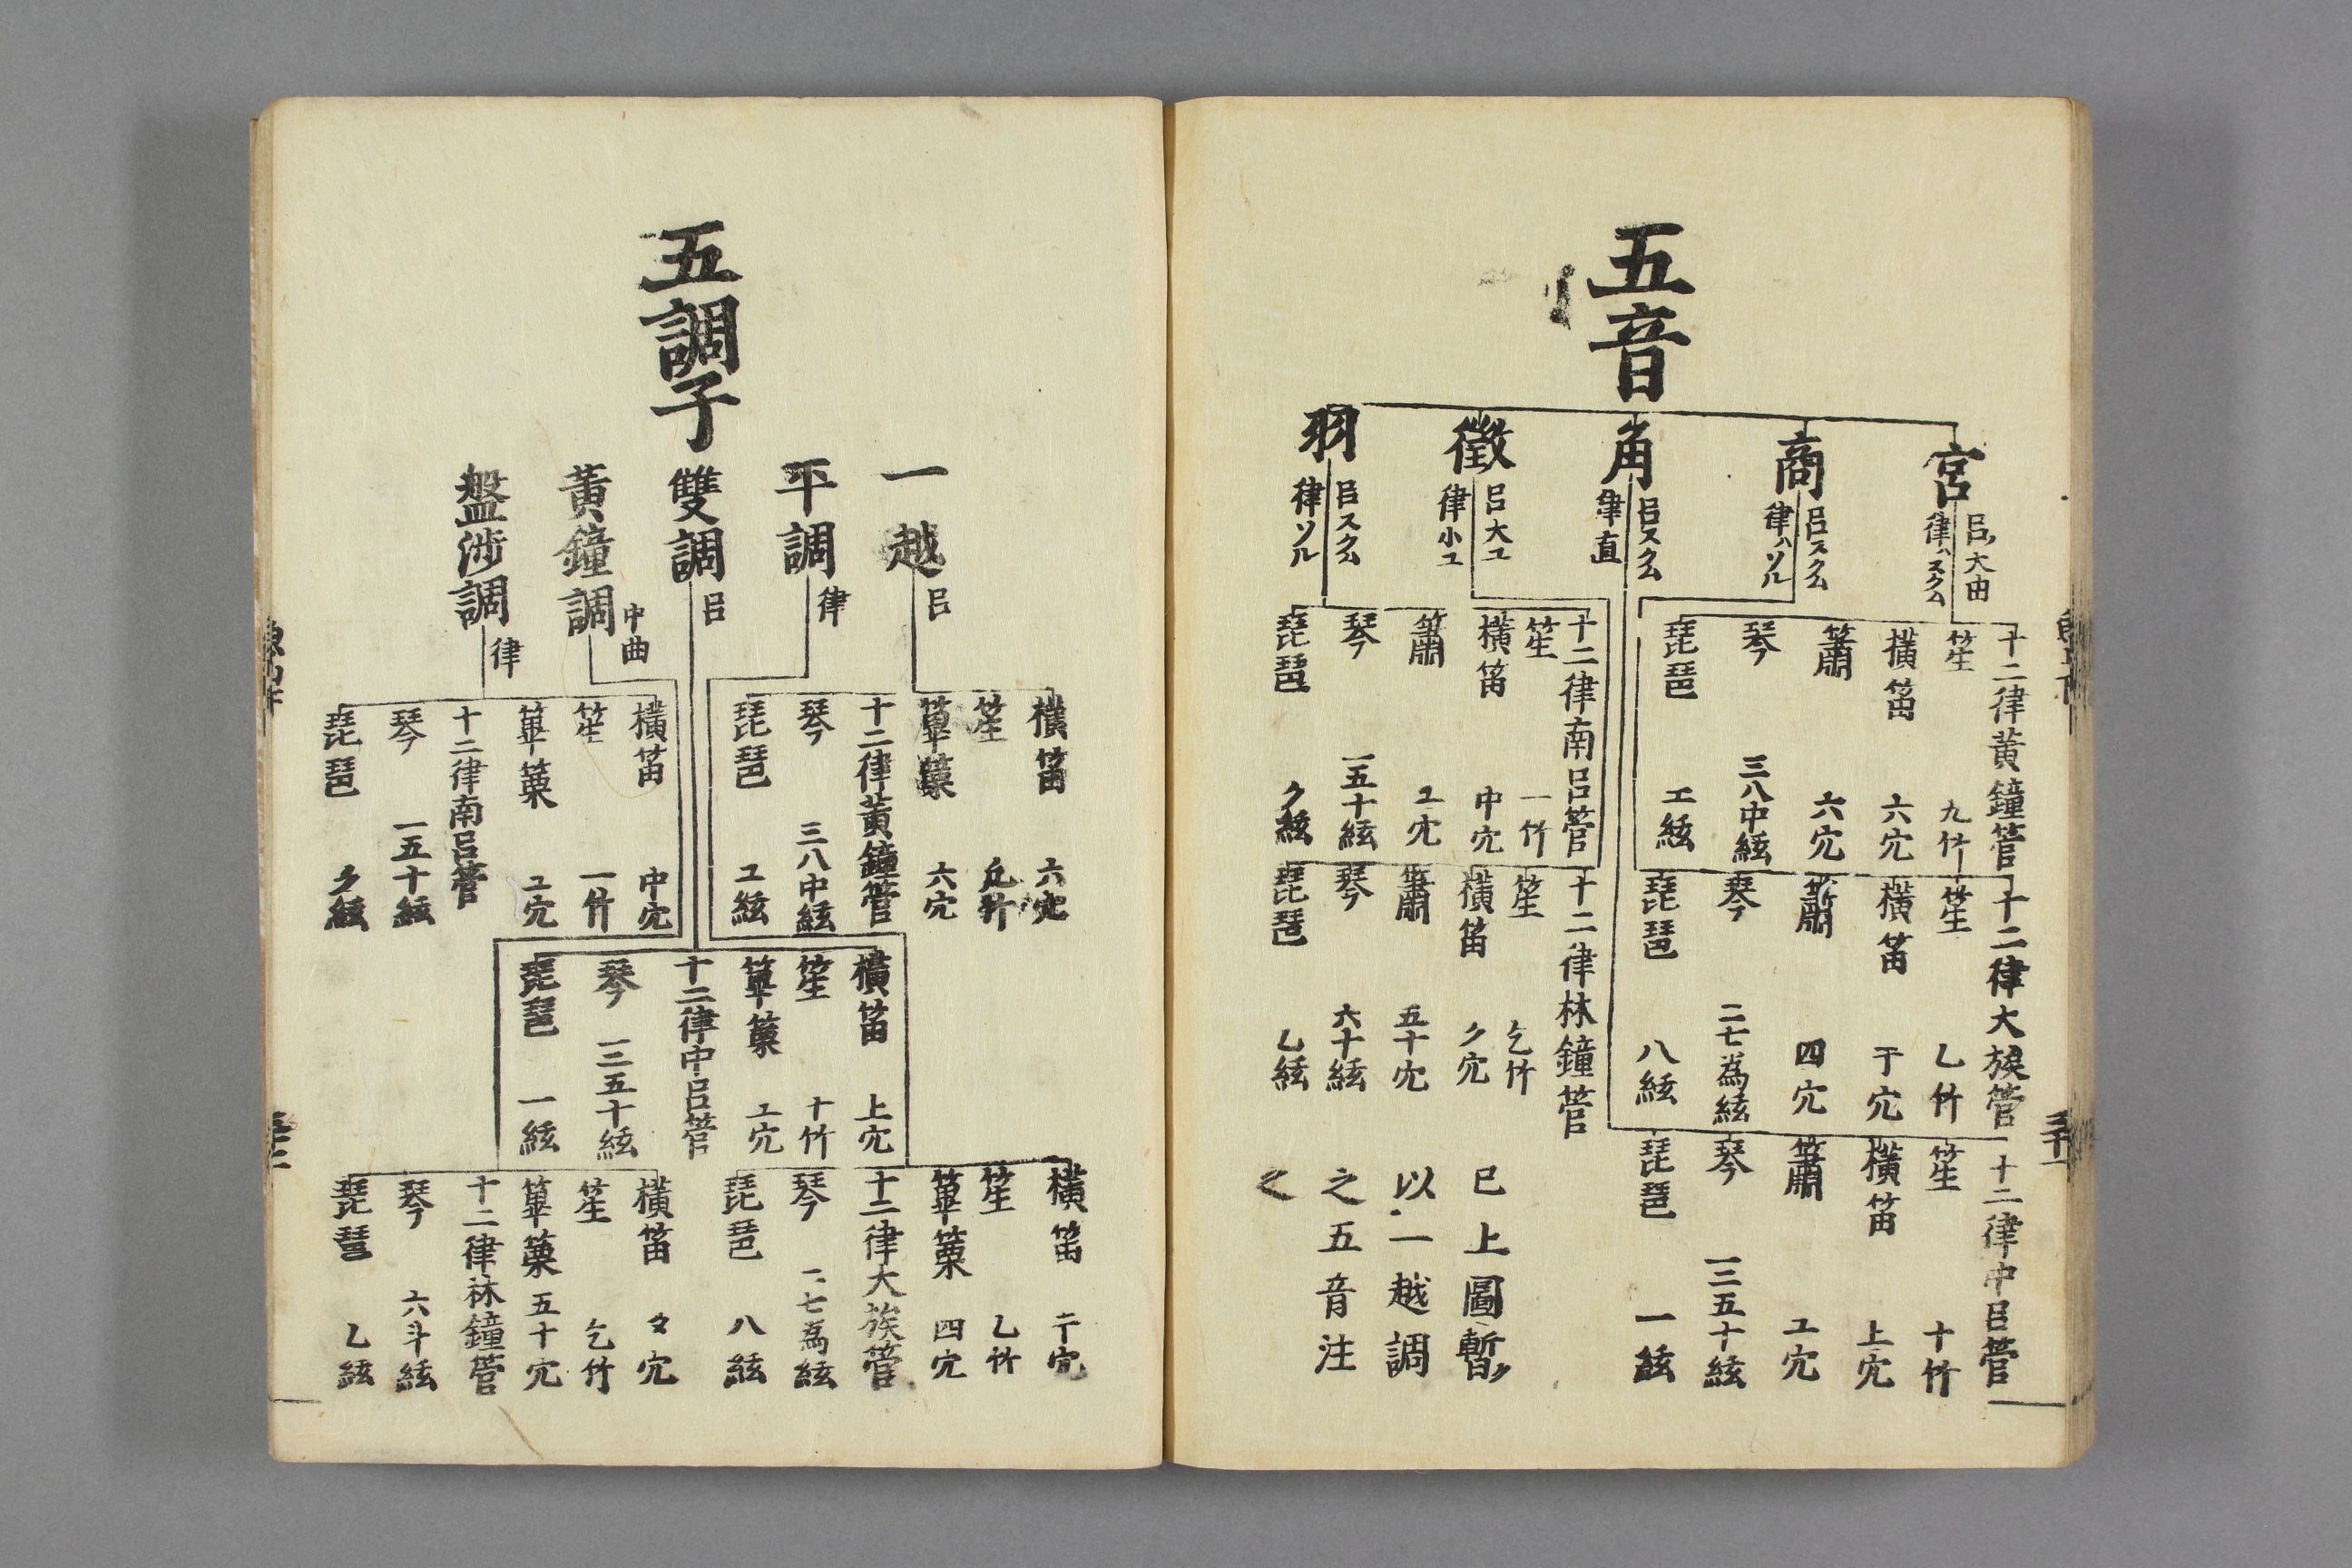 五音
宮
呂大曲
律ハスクム
商
呂スクム
律ハソル
角
呂スクム
律直
徵
呂大ユ
律小ユ
羽
呂スクム
律ソル
十二律黃鐘管
笙 九竹
橫笛 六穴
簫 六穴
琴 三八中絃
琵琶 工絃
十二律大族管
笙 乙竹
橫笛 干穴
簫 四穴
琴 二七為絃
琵琶 八絃
十二律中呂管
笙 十竹
橫笛 上穴
簫 工穴
琴 一三五十絃
琵琶 一絃
十二律南呂管
笙 一竹
橫笛 中穴
簫 工穴
琴 一五十絃
琵琶 ク絃
十二律林鐘管
笙 乞竹
橫笛 夕穴
簫 五十穴
琴 六十絃
琵琶 乙絃
已上圖暫ク
以一越調
之五音注
之
五調子
一越 呂
平調 律
雙調 呂
黃鐘調 中曲
盤涉調 律
橫笛 六穴
笙
篳篥 六穴
十二律黃鐘管
琴 三八中絃
琵琶 工絃
橫笛 干穴
笙 乙竹
篳篥 四穴
十二律大族管
琴 二七為絃
琵琶 八絃
橫笛 上穴
笙 十竹
篳篥 工穴
十二律中呂管
琴 一三五十絃
琵琶 一絃
橫笛 夕穴
笙 乞竹
篳篥 五十穴
十二律林鐘管
琴 六斗絃
琵琶 乙絃
橫笛 中穴
笙 一竹
篳篥 工穴
十二律南呂管
琴 一五十絃
琵琶 ク絃